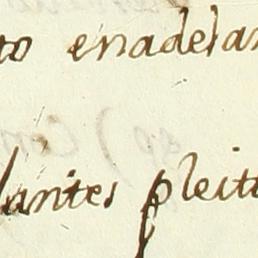 to enadelan
lantes pleit